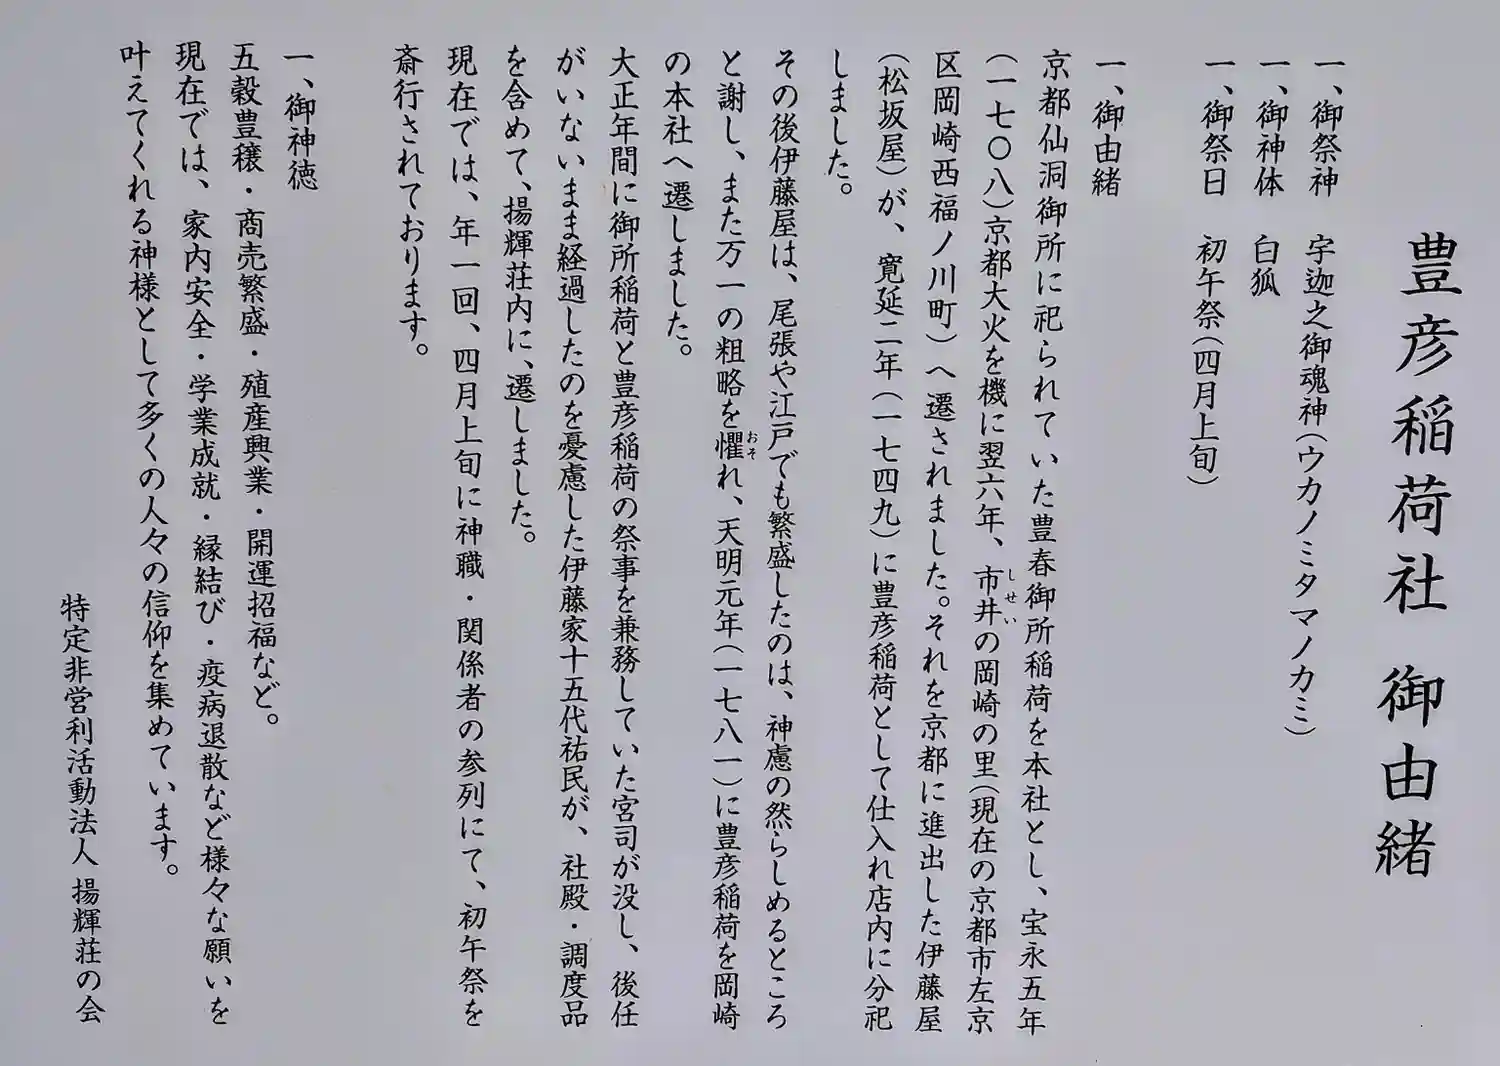 豊彦稲荷社 御由緒
一、御祭神 宇迦之御魂神（ウカノミタマノカミ）
一、御神体 白狐
一、御祭日 初午祭（四月上旬）
一、御由緒
京都仙洞御所に祀られていた豊春御所稲荷を本社とし、宝永五年
（一七〇八）京都大火を機に翌六年、市井の岡崎の里（現在の京都市左京
しせい
区岡崎西福ノ川町）へ遷されました。それを京都に進出した伊藤屋
（松坂屋）が、寛延二年（一七四九）に豊彦稲荷として仕入れ店内に分祀
しました。
その後伊藤屋は、尾張や江戸でも繁盛したのは、神慮の然らしめるところ
と謝し、また万一の粗略を懼れ、天明元年（一七八一）に豊彦稲荷を岡崎
おそ
の本社へ遷しました。
大正年間に御所稲荷と豊彦稲荷の祭事を兼務していた宮司が没し、後任
がいないまま経過したのを憂慮した伊藤家十五代祐民が、社殿・調度品
を含めて、揚輝荘内に、遷しました。
現在では、年一回、四月上旬に神職・関係者の参列にて、初午祭を
斎行されております。
一、御神徳
五穀豊穣・商売繁盛・殖産興業・開運招福など。
現在では、家内安全・学業成就・縁結び・疫病退散など様々な願いを
叶えてくれる神様として多くの人々の信仰を集めています。
特定非営利活動法人 揚輝荘の会